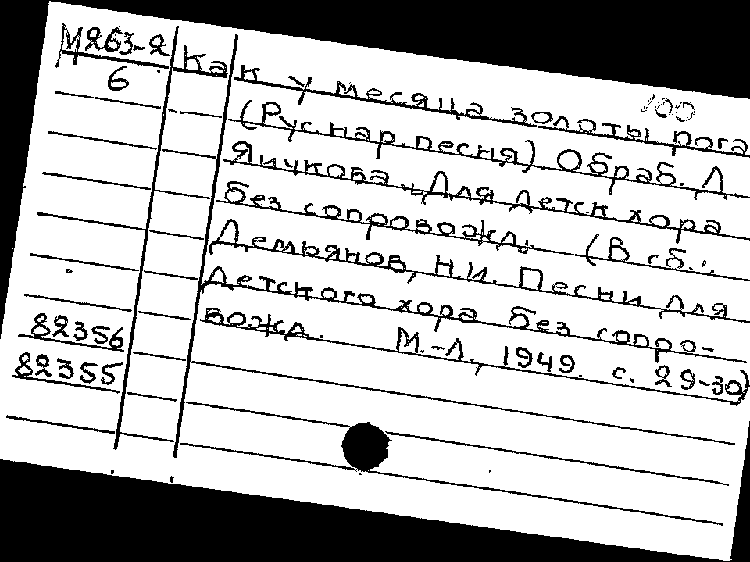 М263-2
6
100
Как у месяца золоты рога
(Рус.нар.песня). Обраб. Л
Яичкова. Для детск хора
без сопровожд. (В сб.:
Демьянов, Н.И. Песни для
детского хора без сопро-
вожд. М.-Л., 1949. с. 29-30)
82356
82355